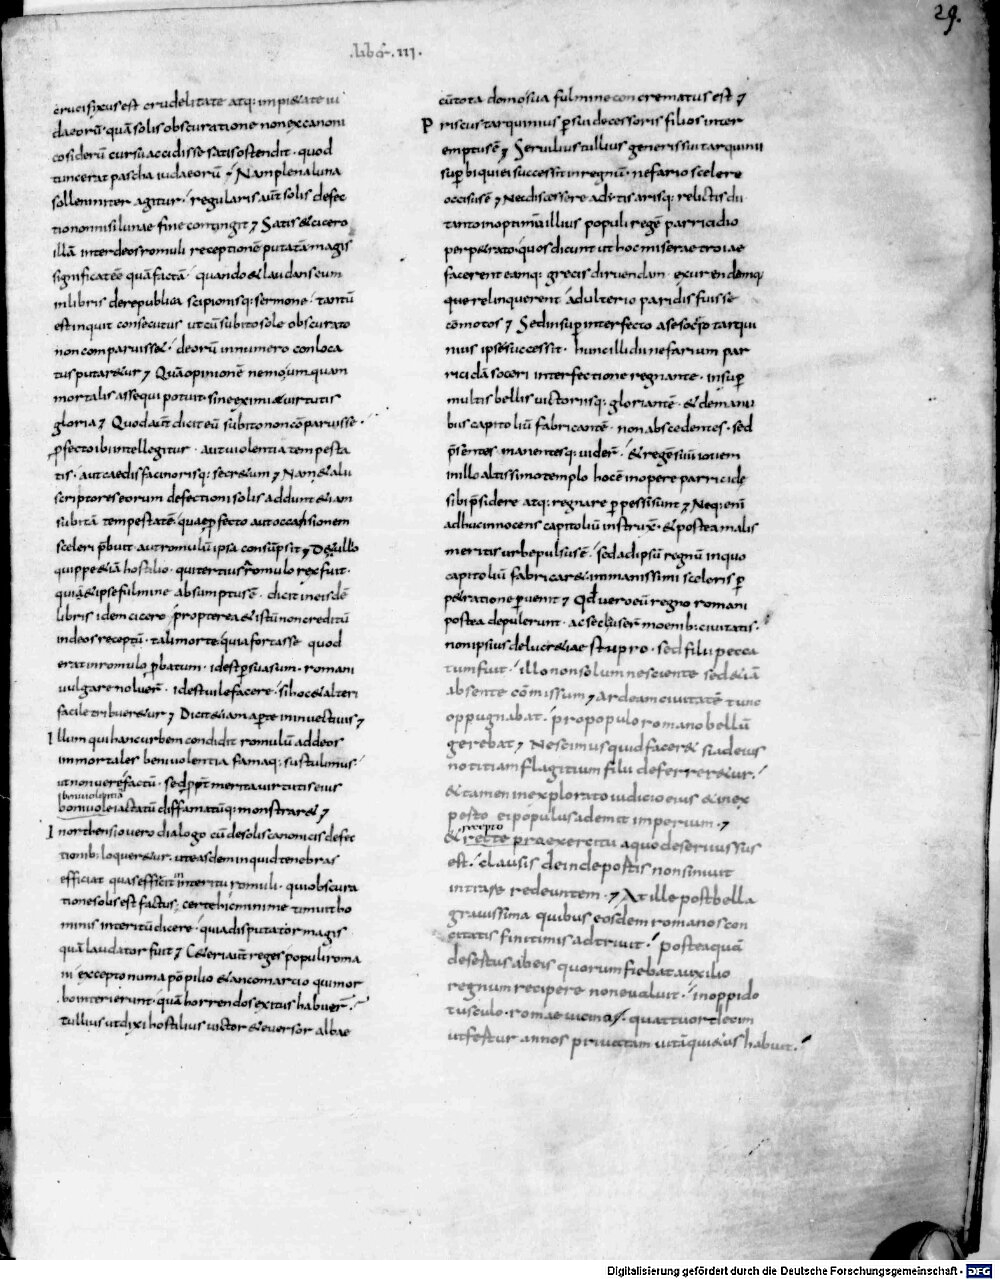 29.
.liber. III.
crucifixus est crudelitate atq; impietate iu
daeorū quā solis obscuratione non ex canoni
co siderū cursu accidisse satis ostendit. quod
tunc erat pascha iudaeorū; Nam plena luna
sollemniter agitur. regularis aut̄ solis defec
tio non nisi lunae fine contingit; Satis & cicero
illā inter deos romuli receptionē putatā magis
significat eē quā factā. quando & laudans eum
in libris de republica scipionisq; sermone. tantū
est inquit consecutus ut cū subito sole obscurato
non comparuisset. deorū in numero conloca
tus putaretur; Quā opinionē nemo umquam
mortalis assequi potuit sine eximia uirtutis
gloria; Quod aut̄ dicit eū subito non cōparuisse.
ꝓfecto ibi intellegitur. aut uiolentia tempesta
tis. aut caedis facinorisq; secretum; Nam & alii
scriptores eorum defectioni solis addunt etiam
subitā tempestatē. quae ꝓfecto aut occasionem
sceleri p̄buit aut romulū ipsa consūpsit; De tullo
quippe etiā hostilio. qui tertius a romulo rex fuit.
quia & ipse fulmine absumptus ē. dicit in eisdē
libris idem cicero. propterea & istū non creditū
in deos receptū. tali morte. quia fortasse quod
erat in romulo ꝓbatum. id est ꝑsuasum. romani
uulgare noluer̄. id est uile facere. si hoc & alteri
facile tribueretur; Dicit etiam aperte in inuectiuis;
Illum qui hanc urbem condidit romulū ad deos
immortales beniuolentia famaq; sustulimus.
ut non uere factū. sed propt̄ merita uirtutis eius
beniuolentia
beniuole iactatū diffamatūq; monstraret;
In ortensio uero dialogo cū de solis canonicis defec
tionib; loqueretur. ut easdem inquid tenebras
efficiat quas effecit in interitu romuli. qui obscura
tione solis est factus; certe hic minime timuit ho
minis interitū dicere. quia disputator magis
quā laudator fuit; Ceteri aut̄ reges populi roma
ni excepto numa pōpilio & anco marcio qui mor
bo interierunt. quā horrendos exitus habuer̄.
tullius ut dixi hostilius uictor & euersor albae
cū tota domo sua fulmine concrematus est;
Priscus tarquinius ꝑ sui decessoris filios inter
emptus ē; Seruilius tullius generi sui tarquinii
suꝑbi qui ei successit in regnū. nefario scelere
occisus ē; Nec discessere adytis arisq; relictis dii
tanto in optimū illius populi regē parricidio
perpetrato. quos dicunt ut hoc miserae troiae
facerent eamq; grecis diruendam exurendamq;
que relinquerent adulterio paridis fuisse
cōmotos; Sed insuꝑ interfecto a se socero tarqui
nius ipse successit. hunc illi dii nefarium par
ricidā soceri interfectione regnante. insuꝑ
multis bellis uictoriisq; gloriantē. & de manu
bus capitoliū fabricantē. non abscedentes. sed
p̄sentes manentesq; uider̄. & regē suū iouem
in illo altissimo templo hoc ē in opere parricide
sibi p̄sidere atq; regnare ꝑpessi sunt; Neq; enī
adhuc innocens capitoliū instrux̄. & postea malis
meritis urbe pulsus ē. sed ad ipsū regnū in quo
capitoliū fabricaret inmanissimi sceleris ꝑ
petratione ꝑuenit; Qd̄ uero eū regno romani
postea depulerunt. ac secluser̄ moenib; ciuitatis.
non ipsius de lucretiae stupro. sed filii pecca
tum fuit. illo non solum nesciente sed etiā
absente cōmissum; Ardeam ciuitatē tunc
oppugnabat. pro populo romano bellū
gerebat; Nescimus quid faceret si ad eius
notitiam flagitium filii deferretur.
& tamen inexplorato iudicio eius & inex
perto ei populus ademit imperium.;
recepto
& recte pra exercitu a quo deseri iussus
est. clausis deinde portis non siniuit
intrare redeuntem.; At ille post bella
grauissima quibus eosdem romanos con
citatis finitimis adtriuit. posteaquā
desertus ab eis quorum fidebat auxilio
regnum recipere non eualuit. in oppido
tusculo. romae uicino. quattuordecim
ut fertur annos priuatam uitā quietus habuit.
Digitalisierung gefördert durch die Deutsche Forschungsgemeinschaft - DFG